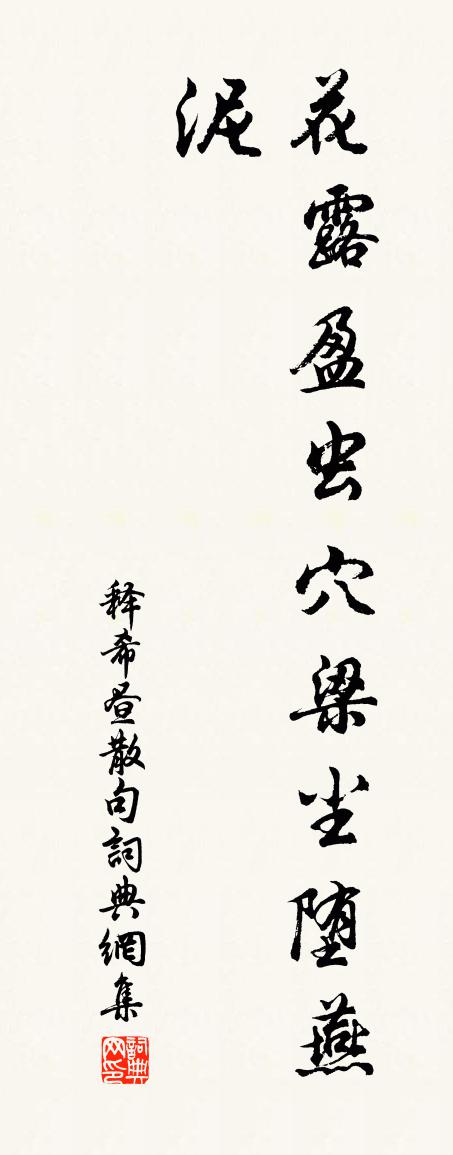 花露盈虫穴梁尘堕燕
泥
释希昼散句詞典網集
詞典网印